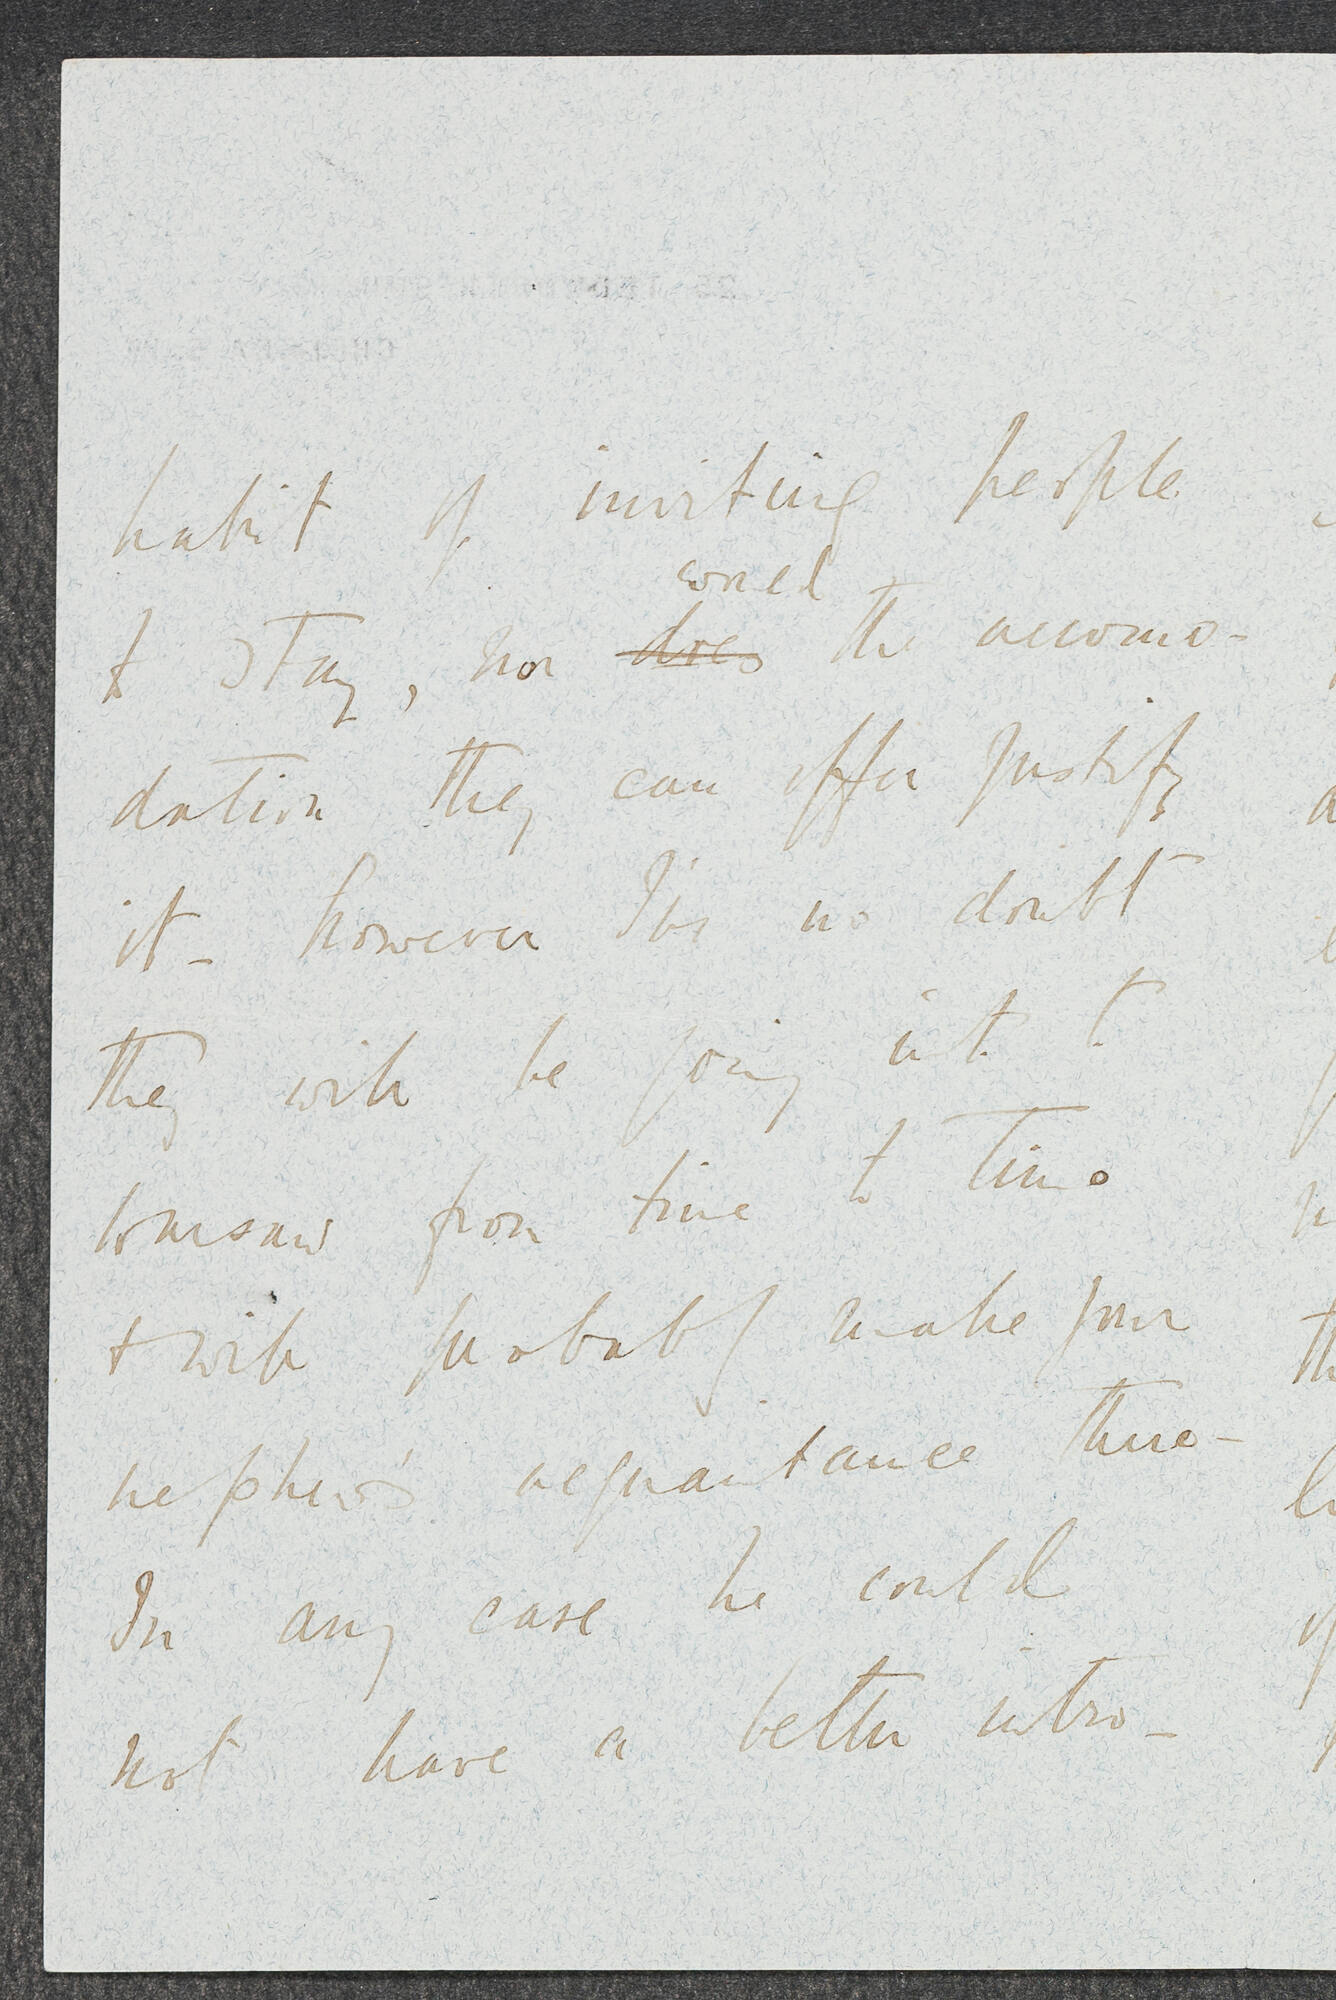 habit of inviting people
would
to stay, nor does the accomo-
dation they can offer justify
it - however I've no doubt
they will be going into
Warsaw from time to time
& will probably make your
nephew's acquaintance there -
In any case he could
not have a better intro-